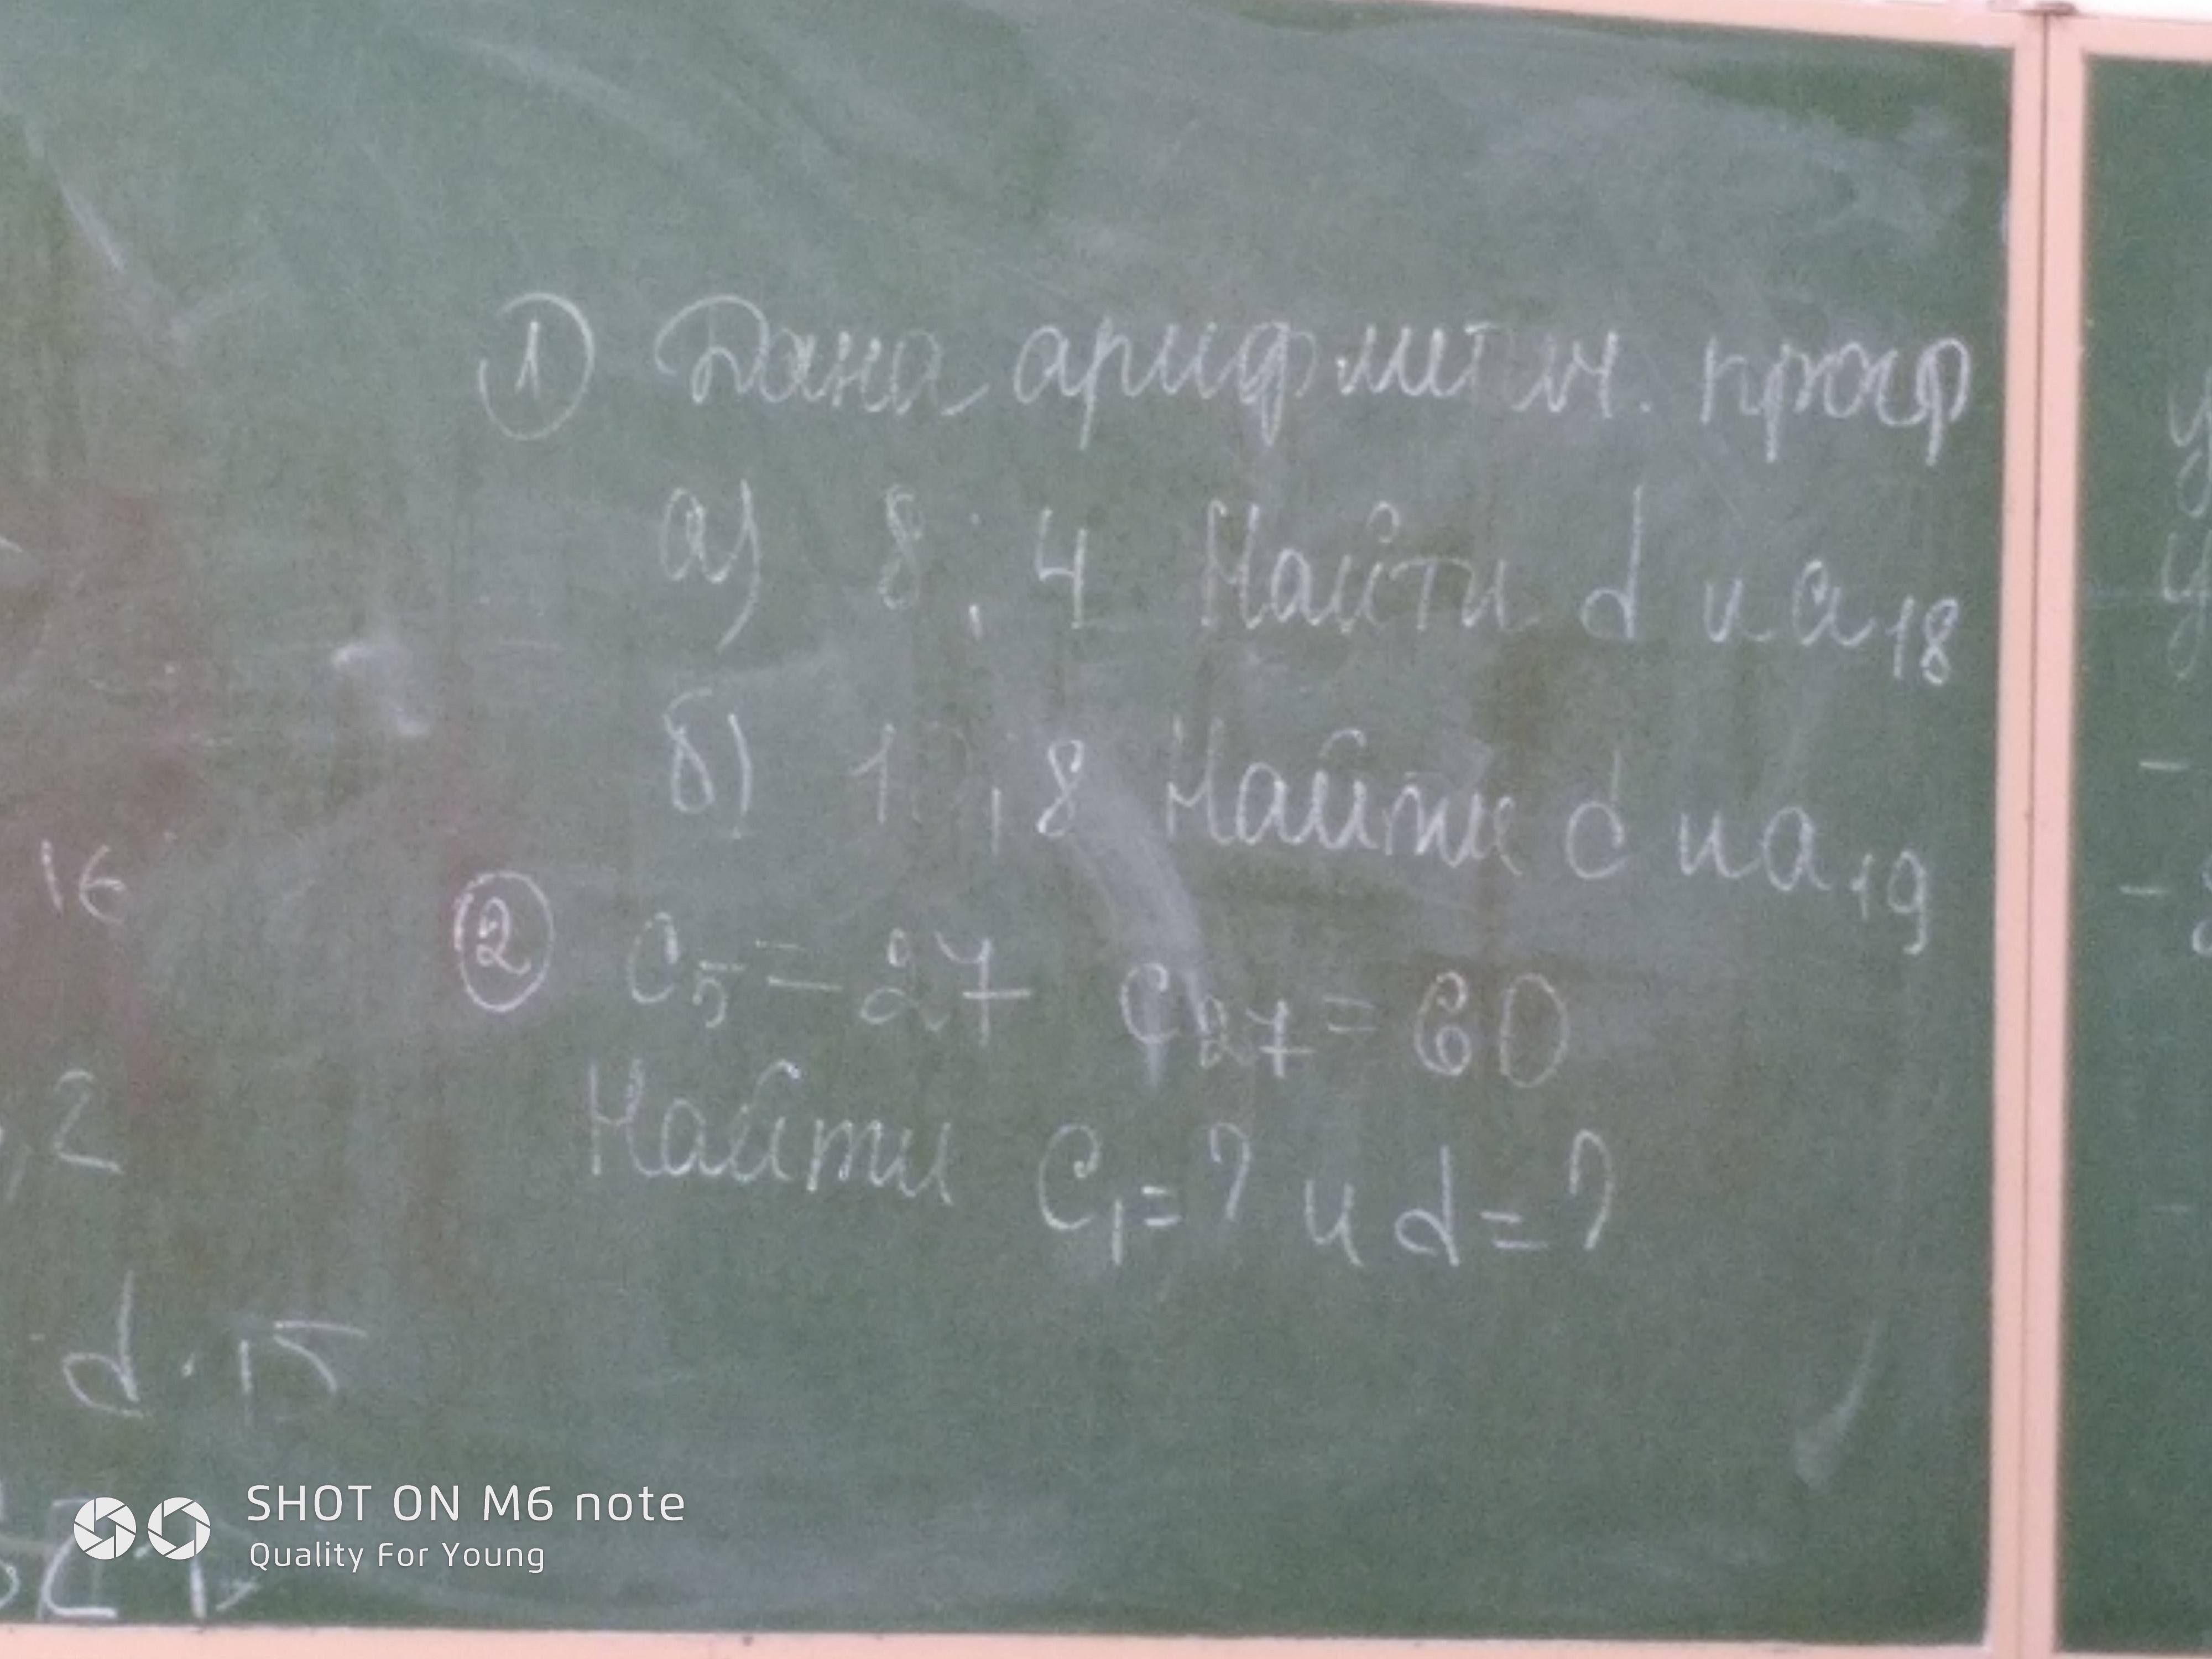 ① Дана арифметич. прогр
а) 8 ; 4 Найти d и a18
б) 1 , 8 Найти d и a19
② C5 = 27 C27 = 60
Найти C1 = ? и d = ?
16
, 2
d · 15
SHOT ON M6 note
Quality For Young